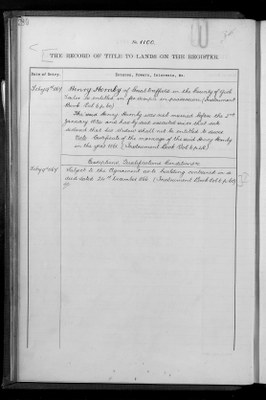 No. 1100.
THE RECORD OF TITLE TO LANDS ON THE REGISTER.
Date of Entry. Estates, Powers, Interests, &c.
Henry Hornby of in the County of York
is entitled in fee simple in possession (Instrument
Book Vol 6 p.
The said Henry Hornby was not married before the 2nd
January 18 and has by deed executed since that date
declared that his widow shall not be entitled to dower
Note Certificate of the marriage of the said Henry Hornby
in the year 186 (Instrument Book Vol 6 p.
Exceptions Qualifications Conditions
Subject to the Agreement as to building contained in a
deed dated December 186 (Instrument Book Vol 6 p.